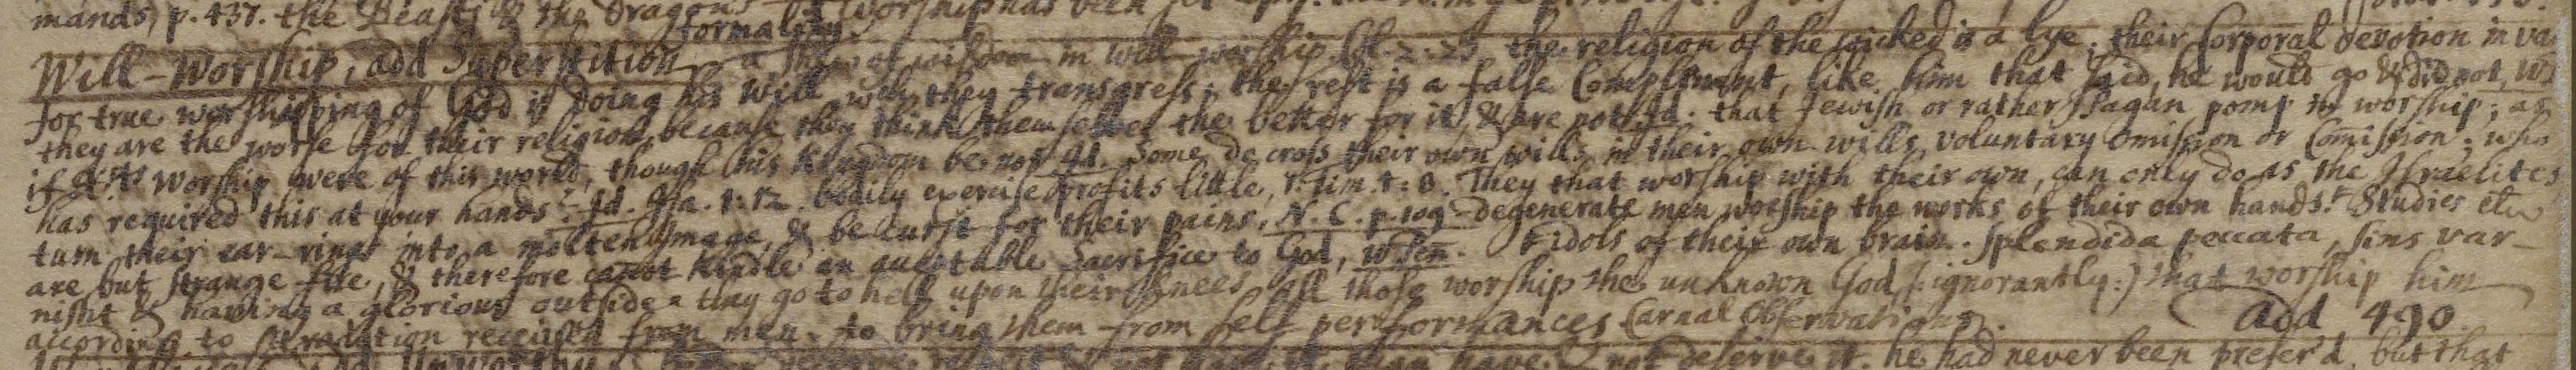 mands, p. 437. the Beast, & the Dragons worship has been
formality.
Will-Worship, add Superstition a shew of wisdom in will worship Col. 2. 23 the religion of the wicked is a lye, their Corporal devotion in va
for true worshipping of God is doing his will wch they transgress; the rest is a false Complement, like him that said, he would go & did not,
they are the worse for their religion, because they think themselves the better for it, & are not. Id. that Jewish or rather Pagan pomp in worship; as
if Xsts Worship were of this world, though his Kingdom be not Id. Some do cross their own wills in their own wills, voluntary omission or Comission; who
has required this at your hands? Id. Isa. 1: 12. bodily exercise profits little, 1. Tim. 4: 8. They that worship with their own, can only do as the Israelites
turn their ear-rings into a molten Image, & be curst for their pains. N. C. p. 109 - degenerate men worship the works of their own hands. Studies etc
are but strange fire, & therefore canot kindle an aceptable Sacrifice to God, W Pen. idols of their own brain. Splendida peccata, sins var-
nisht & having a glorious outside - they go to hell upon their knees all those worship the unknown God (: ignorantly :) that worship him
according to tradition received from men. to bring them from self performances Carnal Observations. add 490
Unworthy not deserve it. he had never been prefer'd, but that